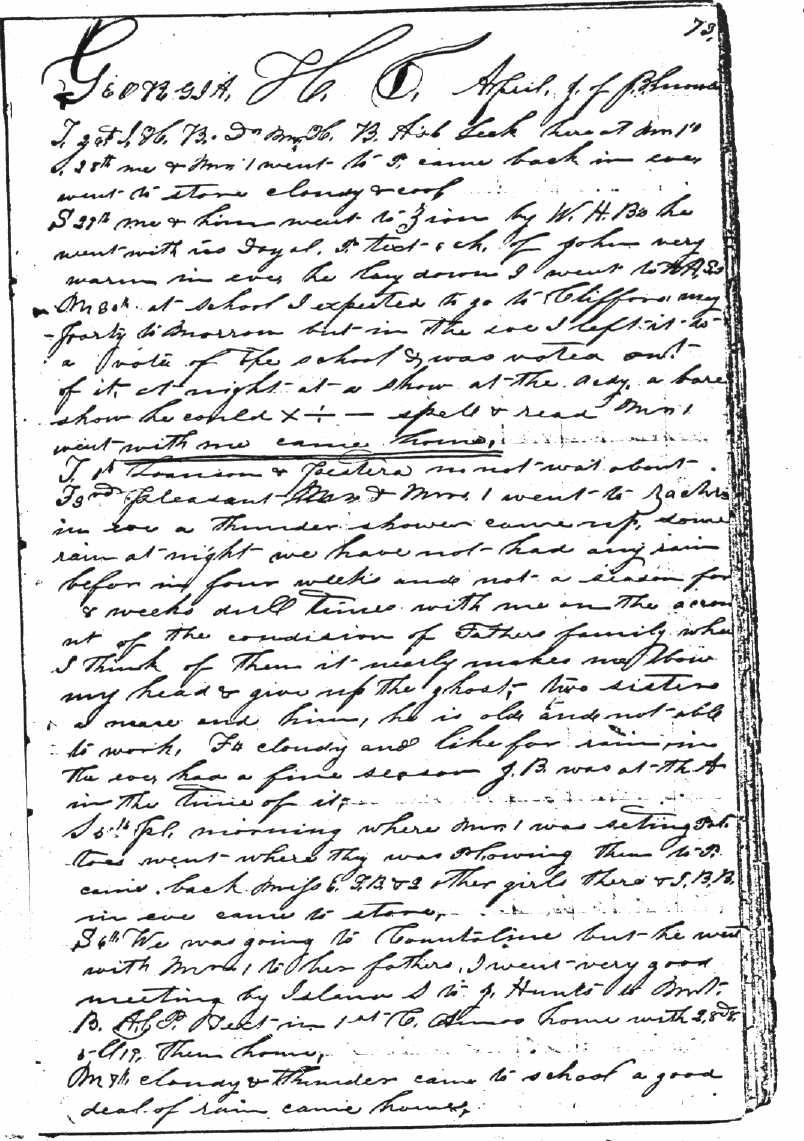 73.
GEORGIA, H. T. April, J. of
S. 28th me & Mrs 1 went to P. came back in eve,
went to store cloudy & cool
S 29th me & him went to Zion by W. H. Bs he
went with us Joyal. P. text, ch. of John very
warm in eve, he lay down I went to
M 30th at school I expected to go to Clifford may
party to morrow but in the eve I left it to
a vote of the school & was voted out
of it, at night at a show at the Acdy. a bare
show he could × ÷ — spell & read Mrs 1
went with me came home,
T. 1st & m not wat about
pleasant & Mrs 1 went to
in eve a thunder shower came up, some
rain at night we have not had any rain
befor in four weeks and not a season for
8 weeks dull times with me on the accou
nt of the condision of Fathers family whe
I think of them it nearly makes me bow
my head & give up the ghost, two sisters
a mare and him, he is old and not able
to work, F 4 cloudy and like for rain, in
the eve, had a fine season J. B. was at the A
in the time of it,
S 5th pl. morning where Mrs 1 was seting Pot.
toes went where thy was Plowing then to P.
came back Miss E. J. B. & 2 other girls there & J. B. B.
in eve came to store,
S 6th We was going to but he went
with Mrs 1 to her fathers, I went very good
meeting by Island S to J. Hunts to
B. Text in 1st home with
then home,
M 7th cloudy & thunder came to school a good
deal of rain came home,